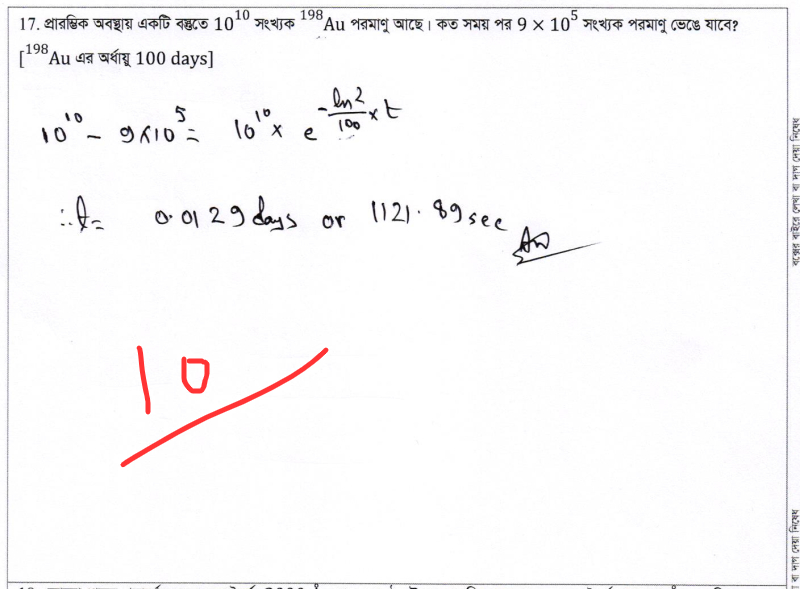 17. প্রারম্ভিক অবস্থায় একটি বস্তুতে 10^10 সংখ্যক ^198Au পরমাণু আছে। কত সময় পর 9 × 10^5 সংখ্যক পরমাণু ভেঙে যাবে?
[^198Au এর অর্ধায়ু 100 days]
10^10 - 9×10^5 = 10^10 × e^(-ln2/100 × t)
∴ t = 0.0129 days or 1121.89 sec
Ans
10
বক্সের বাইরে লেখা বা দাগ দেয়া নিষেধ
বা দাগ দেয়া নিষেধ